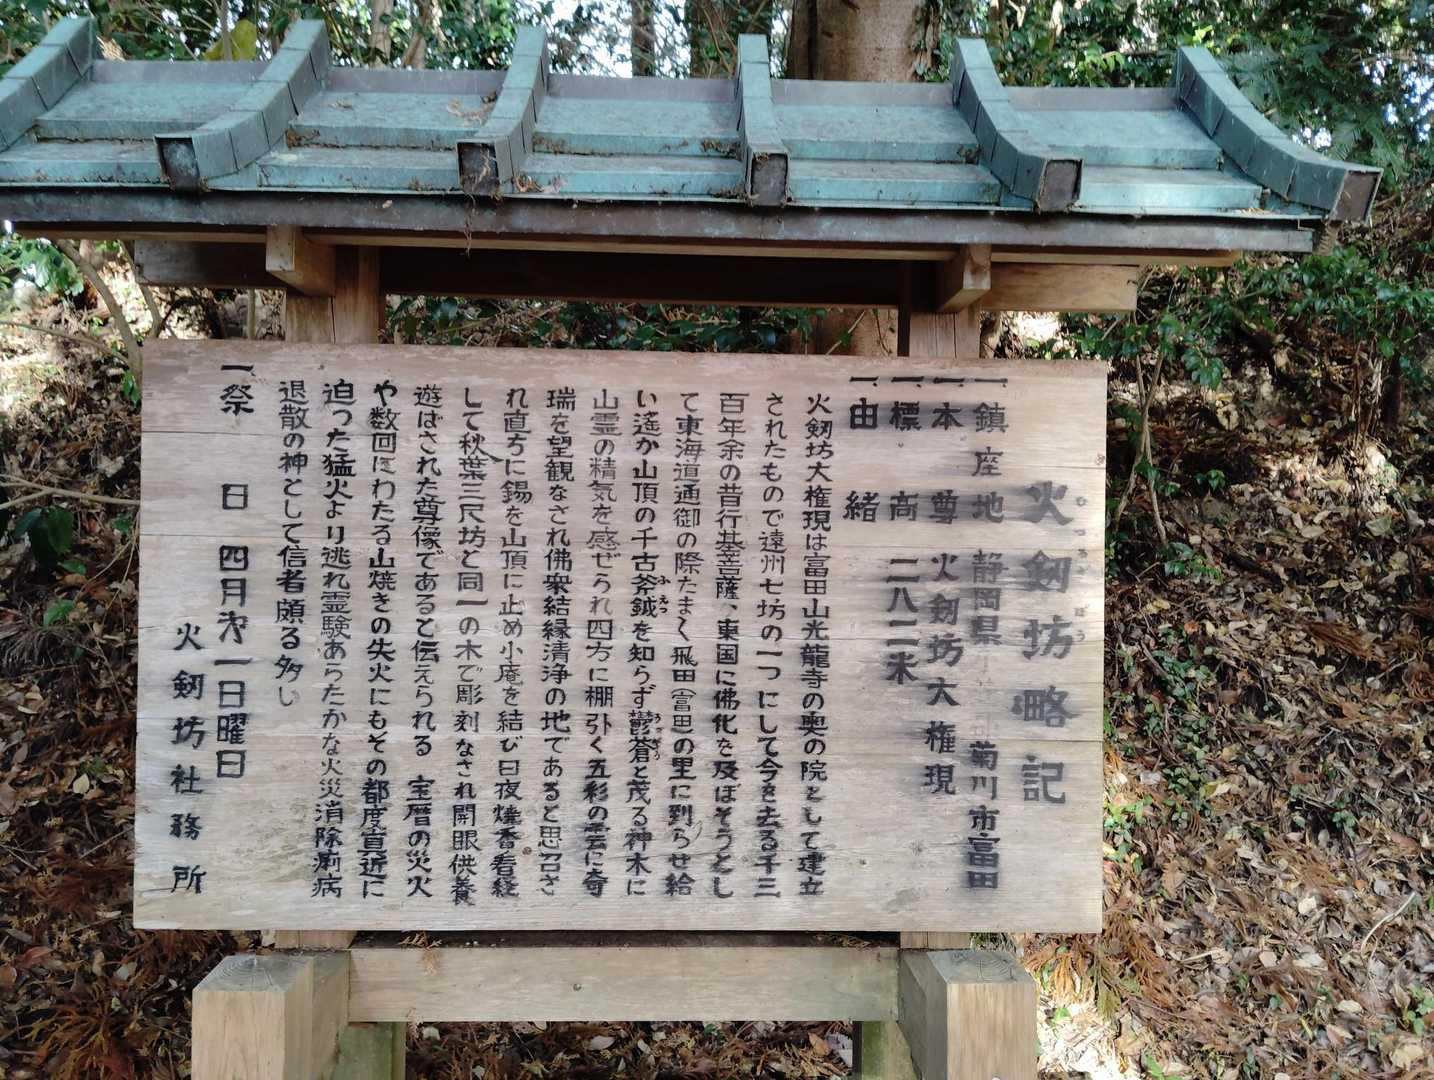 火剱坊略記
ひつるぎぼう
一、鎮座地 静岡県 菊川市富田
一、本尊 火剱坊大権現
一、標高 二八二米
一、由緒
火剱坊大権現は富田山光龍寺の奥の院として建立
されたもので遠州七坊の一つにして今を去る千三
百年余の昔行基菩薩、東国に佛化を及ぼそうとし
て東海道通御の際たま〱飛田(富田)の里に到らせ給
い遙か山頂の千古斧鉞を知らず鬱蒼と茂る神木に
ふえつ
うっそう
山霊の精気を感ぜられ四方に棚引く五彩の雲に奇
瑞を望観なされ佛衆結縁清浄の地であると思召さ
れ直ちに錫を山頂に止め小庵を結び日夜焼香看経
して秋葉三尺坊と同一の木で彫刻なされ開眼供養
遊ばされた尊像であると伝えられる 宝暦の災火
や数回にわたる山焼きの失火にもその都度直近に
迫った猛火より逃れ霊験あらたかな火災消除痢病
退散の神として信者頗る多し
一、祭日 四月第一日曜日
火剱坊社務所